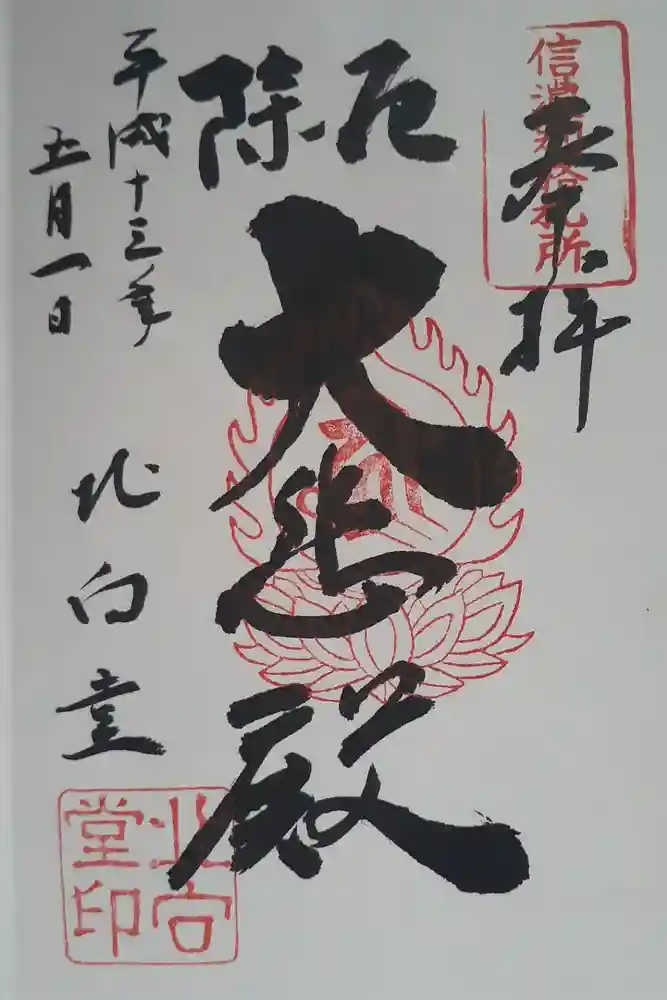 奉拝
信濃
札所
厄除
大悲殿
平成十三年
五月一日
北向堂
北向堂印